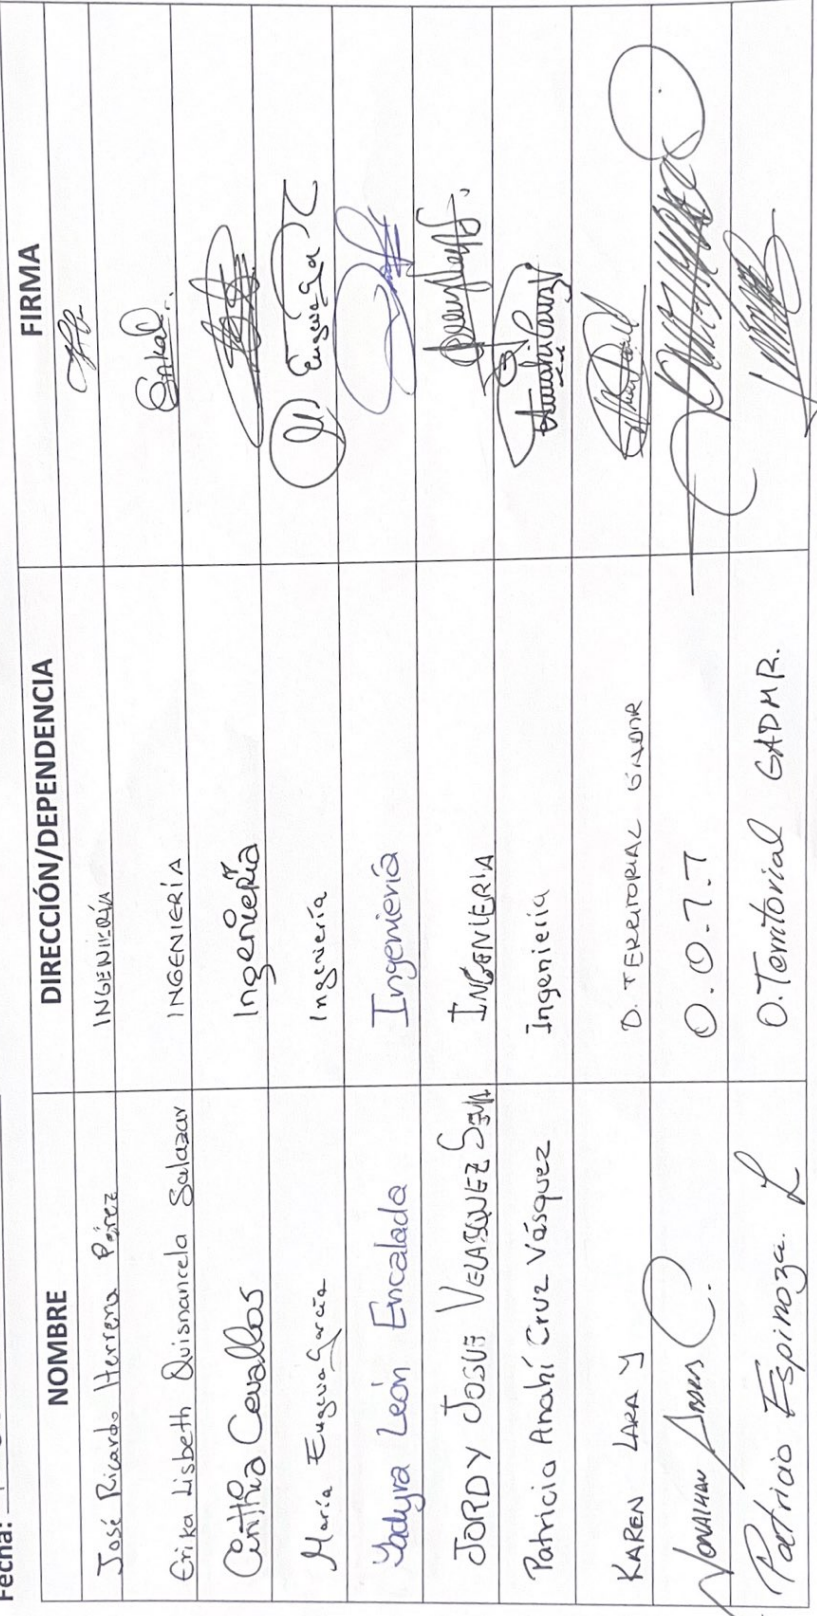 Fecha:
NOMBRE DIRECCIÓN/DEPENDENCIA FIRMA
José Ricardo Herrera Pérez INGENIERÍA
Erika Lisbeth Quisnancela Salazar INGENIERÍA
Cinthia Cevallos Ingeniería
María Eugenia García Ingeniería Eugenia
Yadyra León Encalada Ingeniería
JORDY JOSUE VELASQUEZ INGENIERIA
Patricia Anahí Cruz Vásquez Ingeniería
KAREN LARA Y D. TERRITORIAL GADMR
JONATHAN O.O.T.T
Patricio Espinoza. L O. Territorial GADMR.